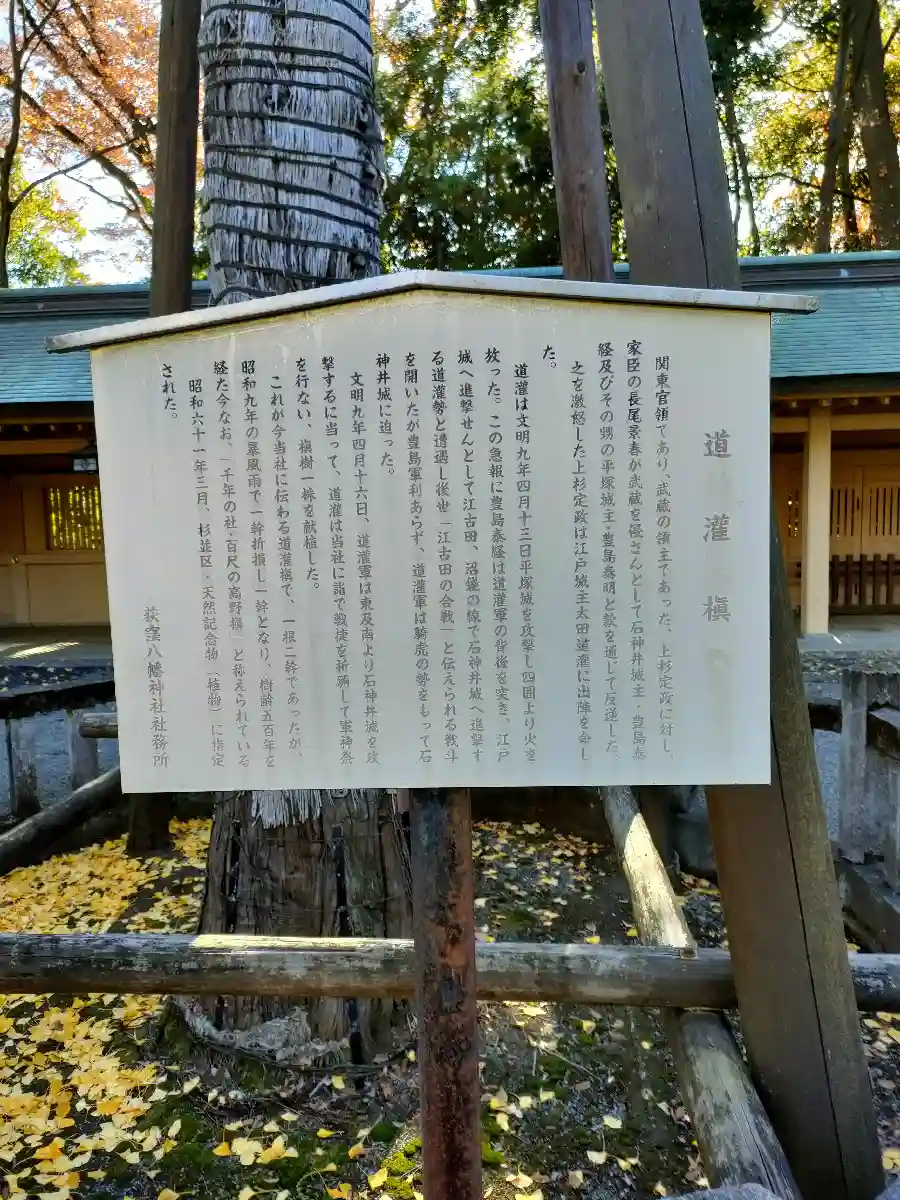 道灌槇
関東官領であり、武蔵の領主であった、上杉定政に対し、
家臣の長尾景春が武蔵を侵さんとして石神井城主・豊島泰
経及びその甥の平塚城主・豊島泰明と款を通じて反逆した。
之を激怒した上杉定政は江戸城主太田道灌に出陣を命じ
た。
道灌は文明九年四月十三日平塚城を攻撃し四囲より火を
放った。この急報に豊島泰経は道灌軍の背後を突き、江戸
城へ進撃せんとして江古田、沼袋の線で石神井城へ進撃す
る道灌勢と遭遇し後世「江古田の合戦」と伝えられる戦斗
を開いたが豊島軍利あらず、道灌軍は騎虎の勢をもって石
神井城に迫った。
文明九年四月十六日、道灌軍は東及南より石神井城を攻
撃するに当って、道灌は当社に詣で戦捷を祈願して軍神祭
を行ない、槇樹一株を献植した。
これが今当社に伝わる道灌槇で、一根二幹であったが、
昭和九年の暴風雨で一幹折損し一幹となり、樹齢五百年を
経た今なお、「千年の社・百尺の高野槇」と称えられている
昭和六十一年三月、杉並区・天然記念物（植物）に指定
された。
荻窪八幡神社社務所